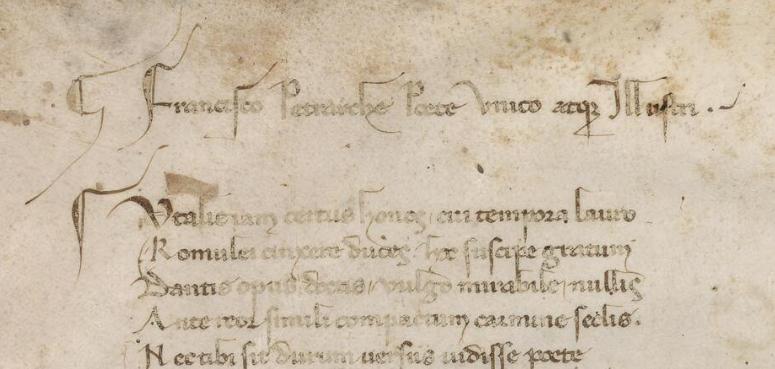 Francisco Petrarche Poete vnico atqꝫ Illustri.
Ytalie iam certus honos, cui tempora lauro
Romulei cinxere duces, hoc suscipe gratum
Dantis opus doctis, vulgo mirabile, nullis
Ante reor simili compactum carmine seclis.
Nec tibi sit durum uersus uidisse poete